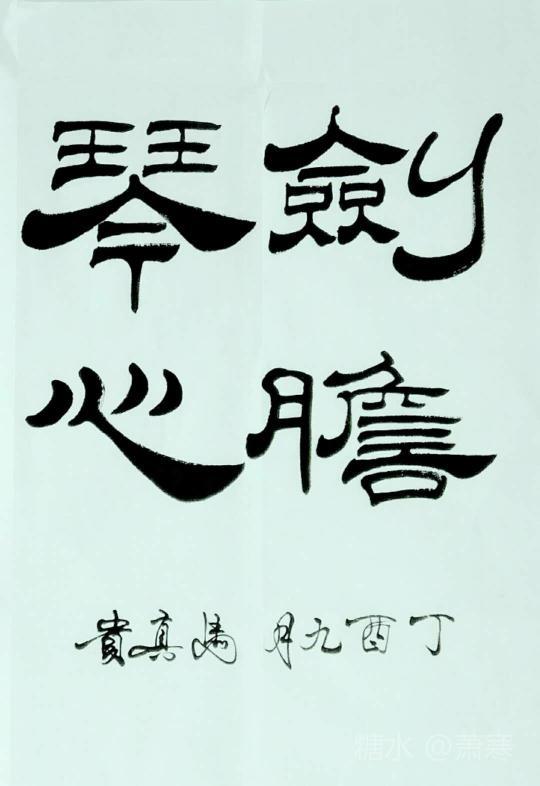 劍膽
琴心
丁酉九月馮真貴
糖水 @萧寒